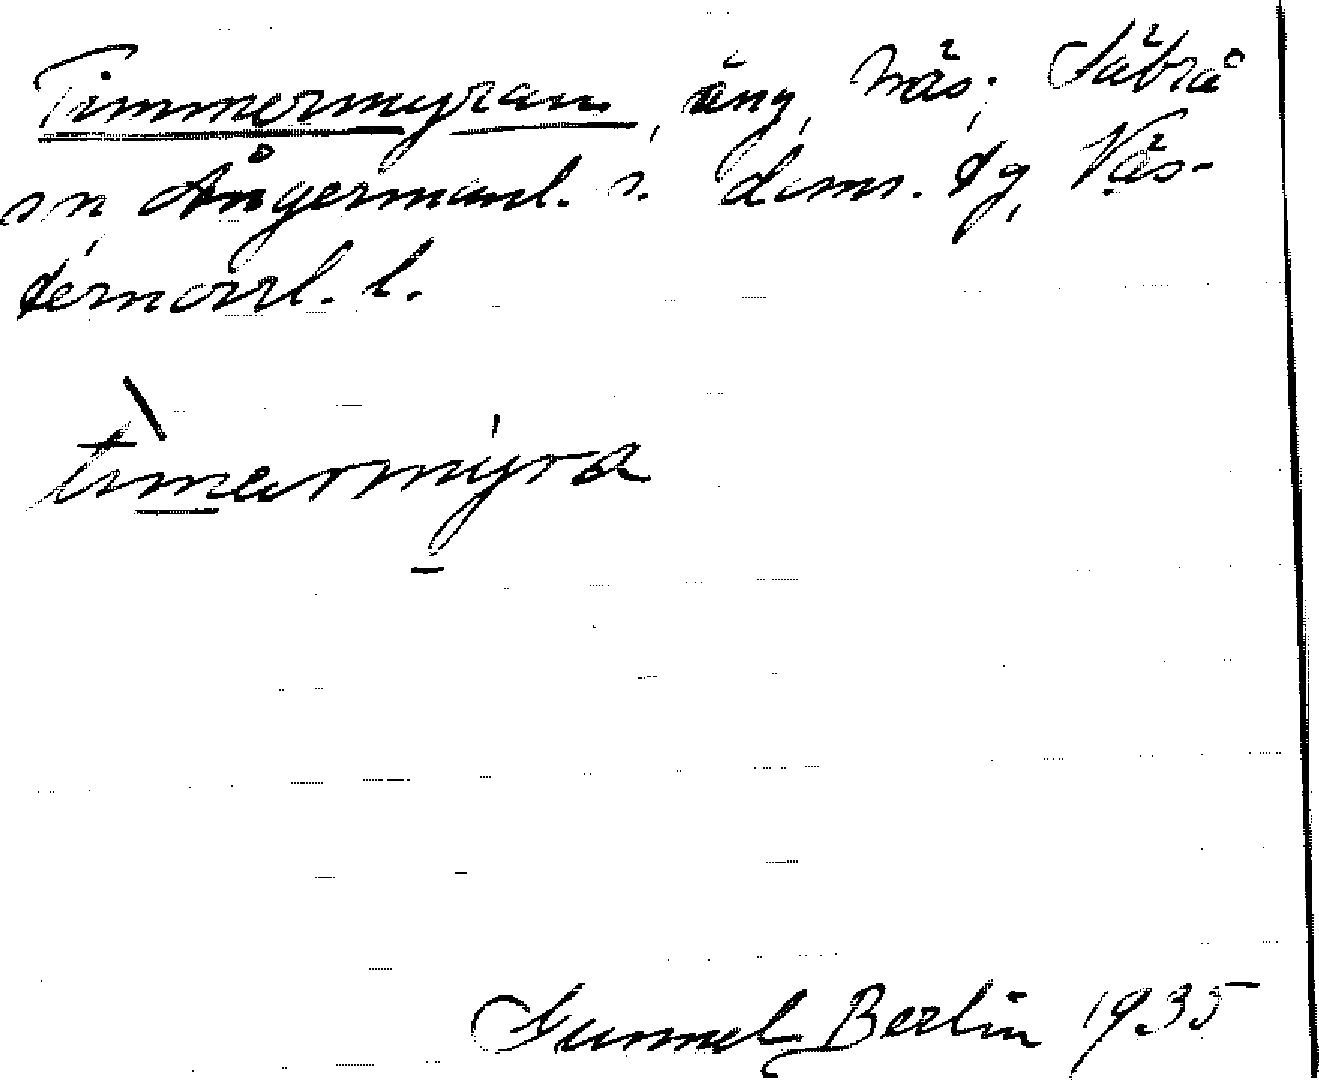 Timmermyran, äng, Näs, Säbrå
sn, Ångermanl. s. doms. tg, Väs-
ternorrl. l.
tìmarmýra
Gunnel Berlin 1935